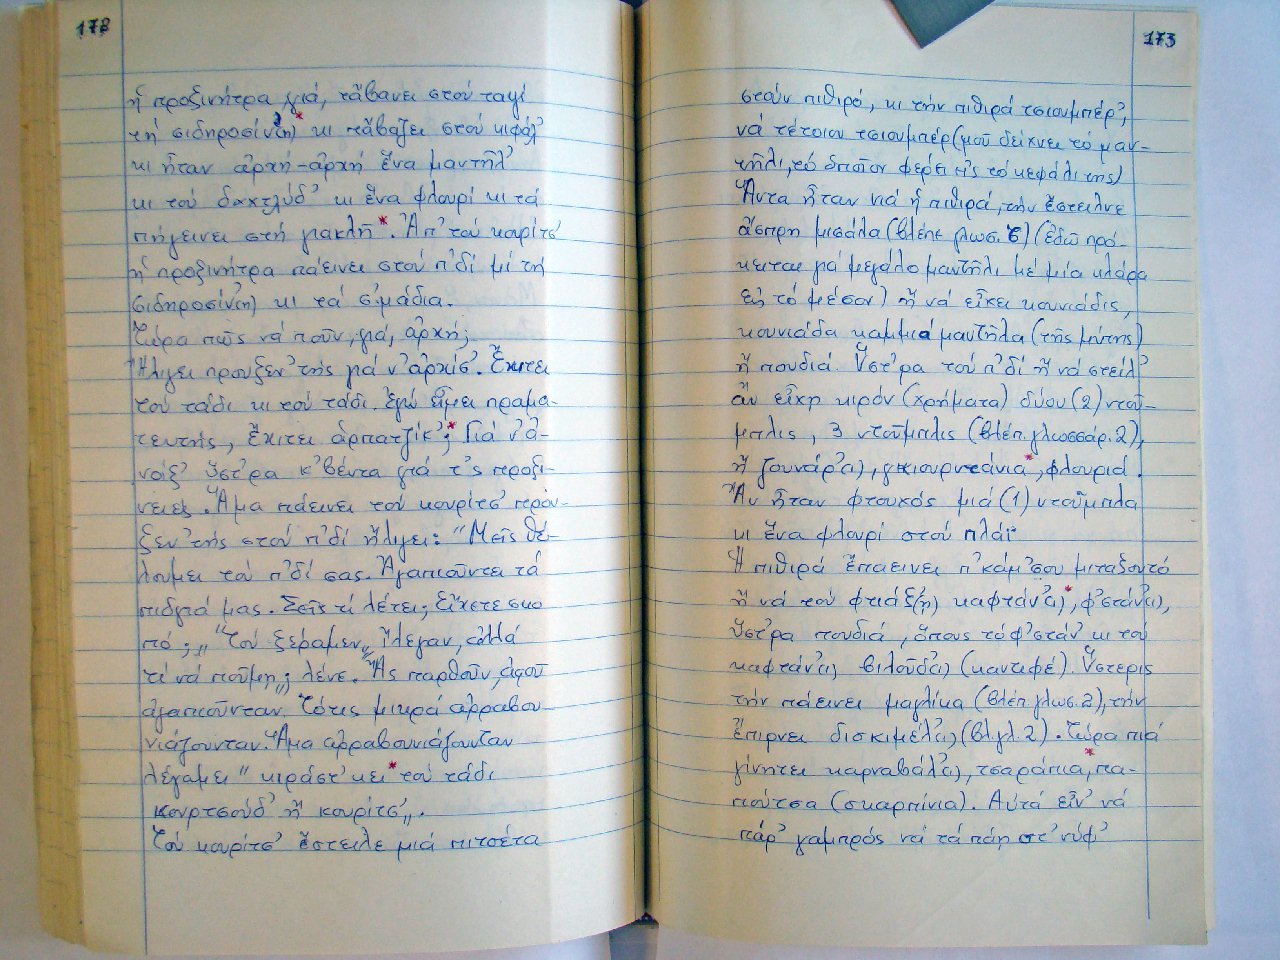 172
ἡ προξινήτρα, γιά, τἄβανει στού ταγί
τή σιδηροσίν(η)* κι τἄβαζει στού κιφάλ'
κι ἦταν ἀρχή-ἀρχή ἕνα μαντήλ'
κι τού δαχτλύδ' κι ἕνα φλουρί κι τά
πήγεινει στή γιακλή*. Ἀπ' τού κουρίτσ'
ἡ προξινήτρα πάεινει στού π'δί μί τή
σιδηροσίν(η) κι τά σ'μάδια.
Τώρα πῶς νά ποῦν, γιά, ἀρχή;
Ἤλιγει προυξεν'τής γιά ν' ἀρχίσ'. Ἔχιτει
τού τάδι κι τού τάδι. Ἐγώ εἶμει πραμα-
τευτής, ἔχιτει ἀρπατζίκ'*; Γιά ν' ἀ-
νοίξ' ὕστ'ρα κ'βέντα γιά τ'ς προξι-
νειές. Ἅμα πάεινει τού κουρίτσ' πρου-
ξεν'τής στού π'δί ἤλιγει: "Μεῖς θέ-
λουμει τού π'δί σας. Ἀγαπιοῦντει τά
πιδγιά μας. Σεῖς τί λέτει; Εἴχετε σκο
πό;" "Τού ξέραμεν", ἤλεγαν, "ἀλλά
τί νά ποῦμη"; λένε. "Ἄς παρθοῦν, ἀφοῦ
ἀγαπιοῦνταν. Τότις μικρά ἀρραβου-
νιάζουνταν. Ἅμα ἀρραβουνιάζουνταν
λέγαμει "κιράστ'κει* τού τάδι
κουρτσούδ' ἤ κουρίτσ'".
Τού κουρίτσ' ἔστειλε μιά πιτσέτα
173
στούν πιθιρό, κι τήν πιθιρά τσιουμπέρ',
νά τέτοιου τσιουμπέρ (μοῦ δείχνει τό μαν-
τήλι, τό ὁποῖον φέρει εἰς τό κεφάλι της)
Ἄντα ἦταν νιά ἡ πιθιρά, τήν ἔστειλνε
ἄσπρη μισάλα (βλέπε γλωσ. 6) (ἐδῶ πρό-
κειται γιά μεγάλο μαντήλι μέ μία κλάρα
εἰς τό μέσον) ἤ νά εἶχει κουνιάδις,
κουνιάδα καμμιά μαντήλα (τῆς μύτης)
ἤ πουδιά. Ὕστ'ρα τού π'δί ἤ νά στείλ'
ἄν εἶχη κιρόν (χρήματα) δύου (2) ντοῦ-
μπλις, 3 ντοῦμπλις (βλέπ. γλωσσάρ. 2),
ἤ ζουνάρ'(ι), γκιουρντάνια*, φλουριά.
Ἄν ἦταν φτουχός μιά (1) ντοῦμπλα
κι ἕνα φλουρί στού πλάϊ.
Ἡ πιθιρά ἔπαεινει π'κάμ'σου μιταξουτό
ἤ νά τού φτιάξ(η) καφτάν'(ι)*, φ'στάν'(ι),
ὕστ'ρα πουδιά, ὅπους τό φ'στάν' κι τού
καφτάν'(ι) βιλοῦδ'(ι) (κατιφέ). Ὕστερις
τήν πάεινει μαγλίκα (βλέπ. γλωσ. 2), τήν
ἔπιρνει δισκιμέλ'(ι) (βλ. γλ. 2). Τώρα πιά
γίνητει καρναβάλ'(ι), τσαράπια*, πα-
πούτσα (σκαρπίνια). Αὐτά εἶν' νά
πάρ' γαμπρός νά τά πάη στ' νύφ'